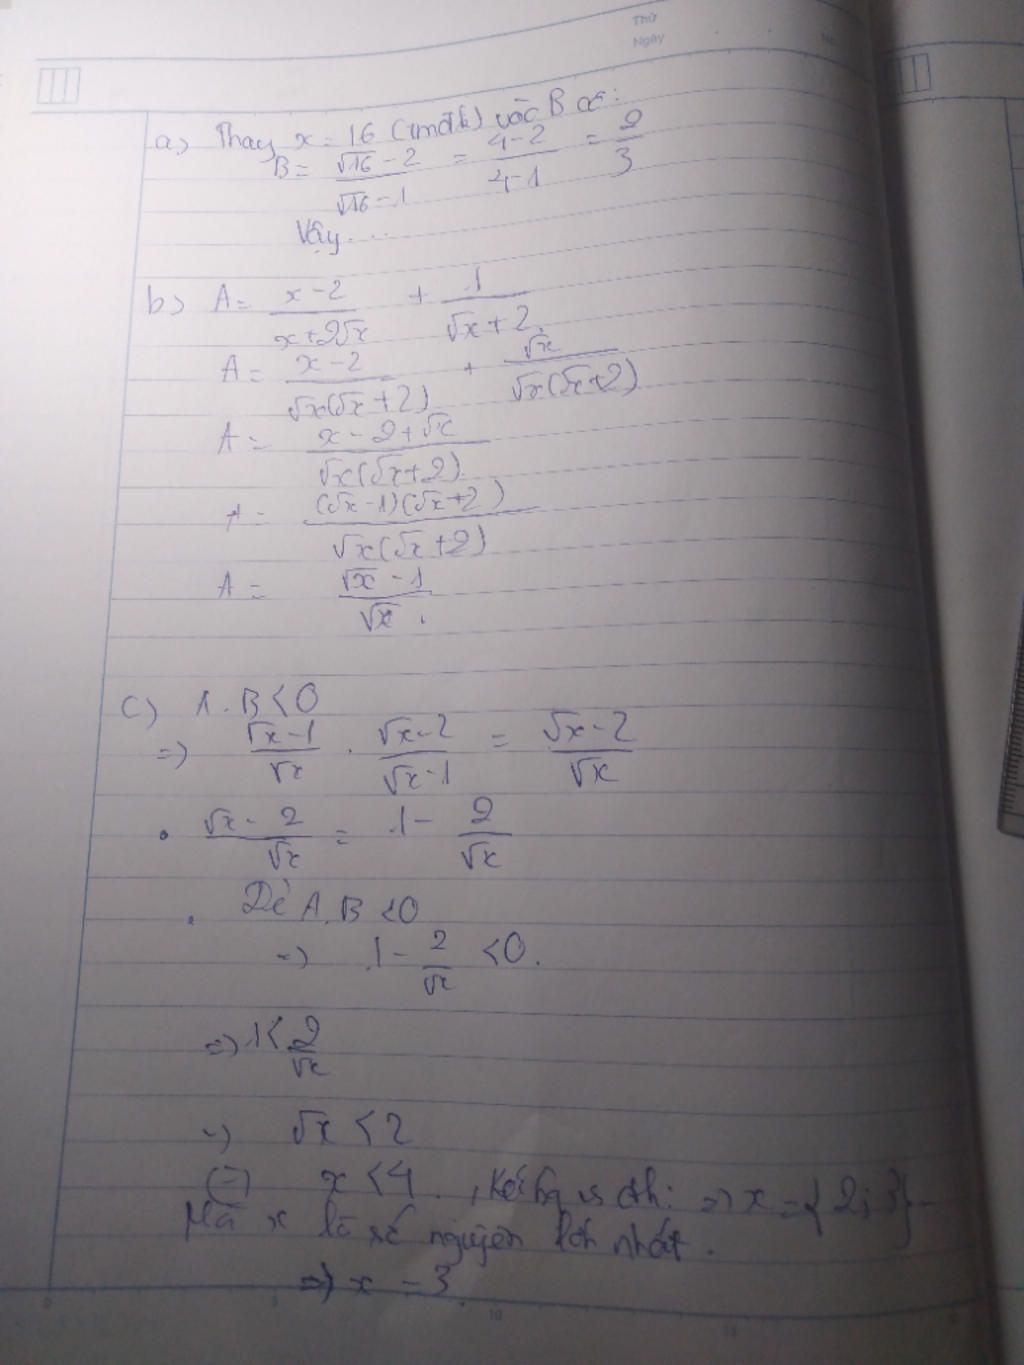 Thứ
Ngày
No.
a) Thay x = 16 (tmđk) vào B có:
B = √16 - 2 / √16 - 1 = 4-2 / 4-1 = 2/3
Vậy....
b) A = x-2 / x+2√x + 1 / √x+2
A = x-2 / √x(√x+2) + √x / √x(√x+2)
A = x-2+√x / √x(√x+2)
A = (√x-1)(√x+2) / √x(√x+2)
A = √x-1 / √x.
c) A.B<0
=) √x-1 / √x . √x-2 / √x-1 = √x-2 / √x
• √x-2 / √x = 1- 2/√x
. Để A.B<0
=) 1- 2/√x <0.
=) 1< 2/√x
=) √x <2
(=) x<4., Kết hợp vs đk: =) x={2;3}
Mà x là số nguyên lớn nhất.
=) x = 3.
0 5 10 15